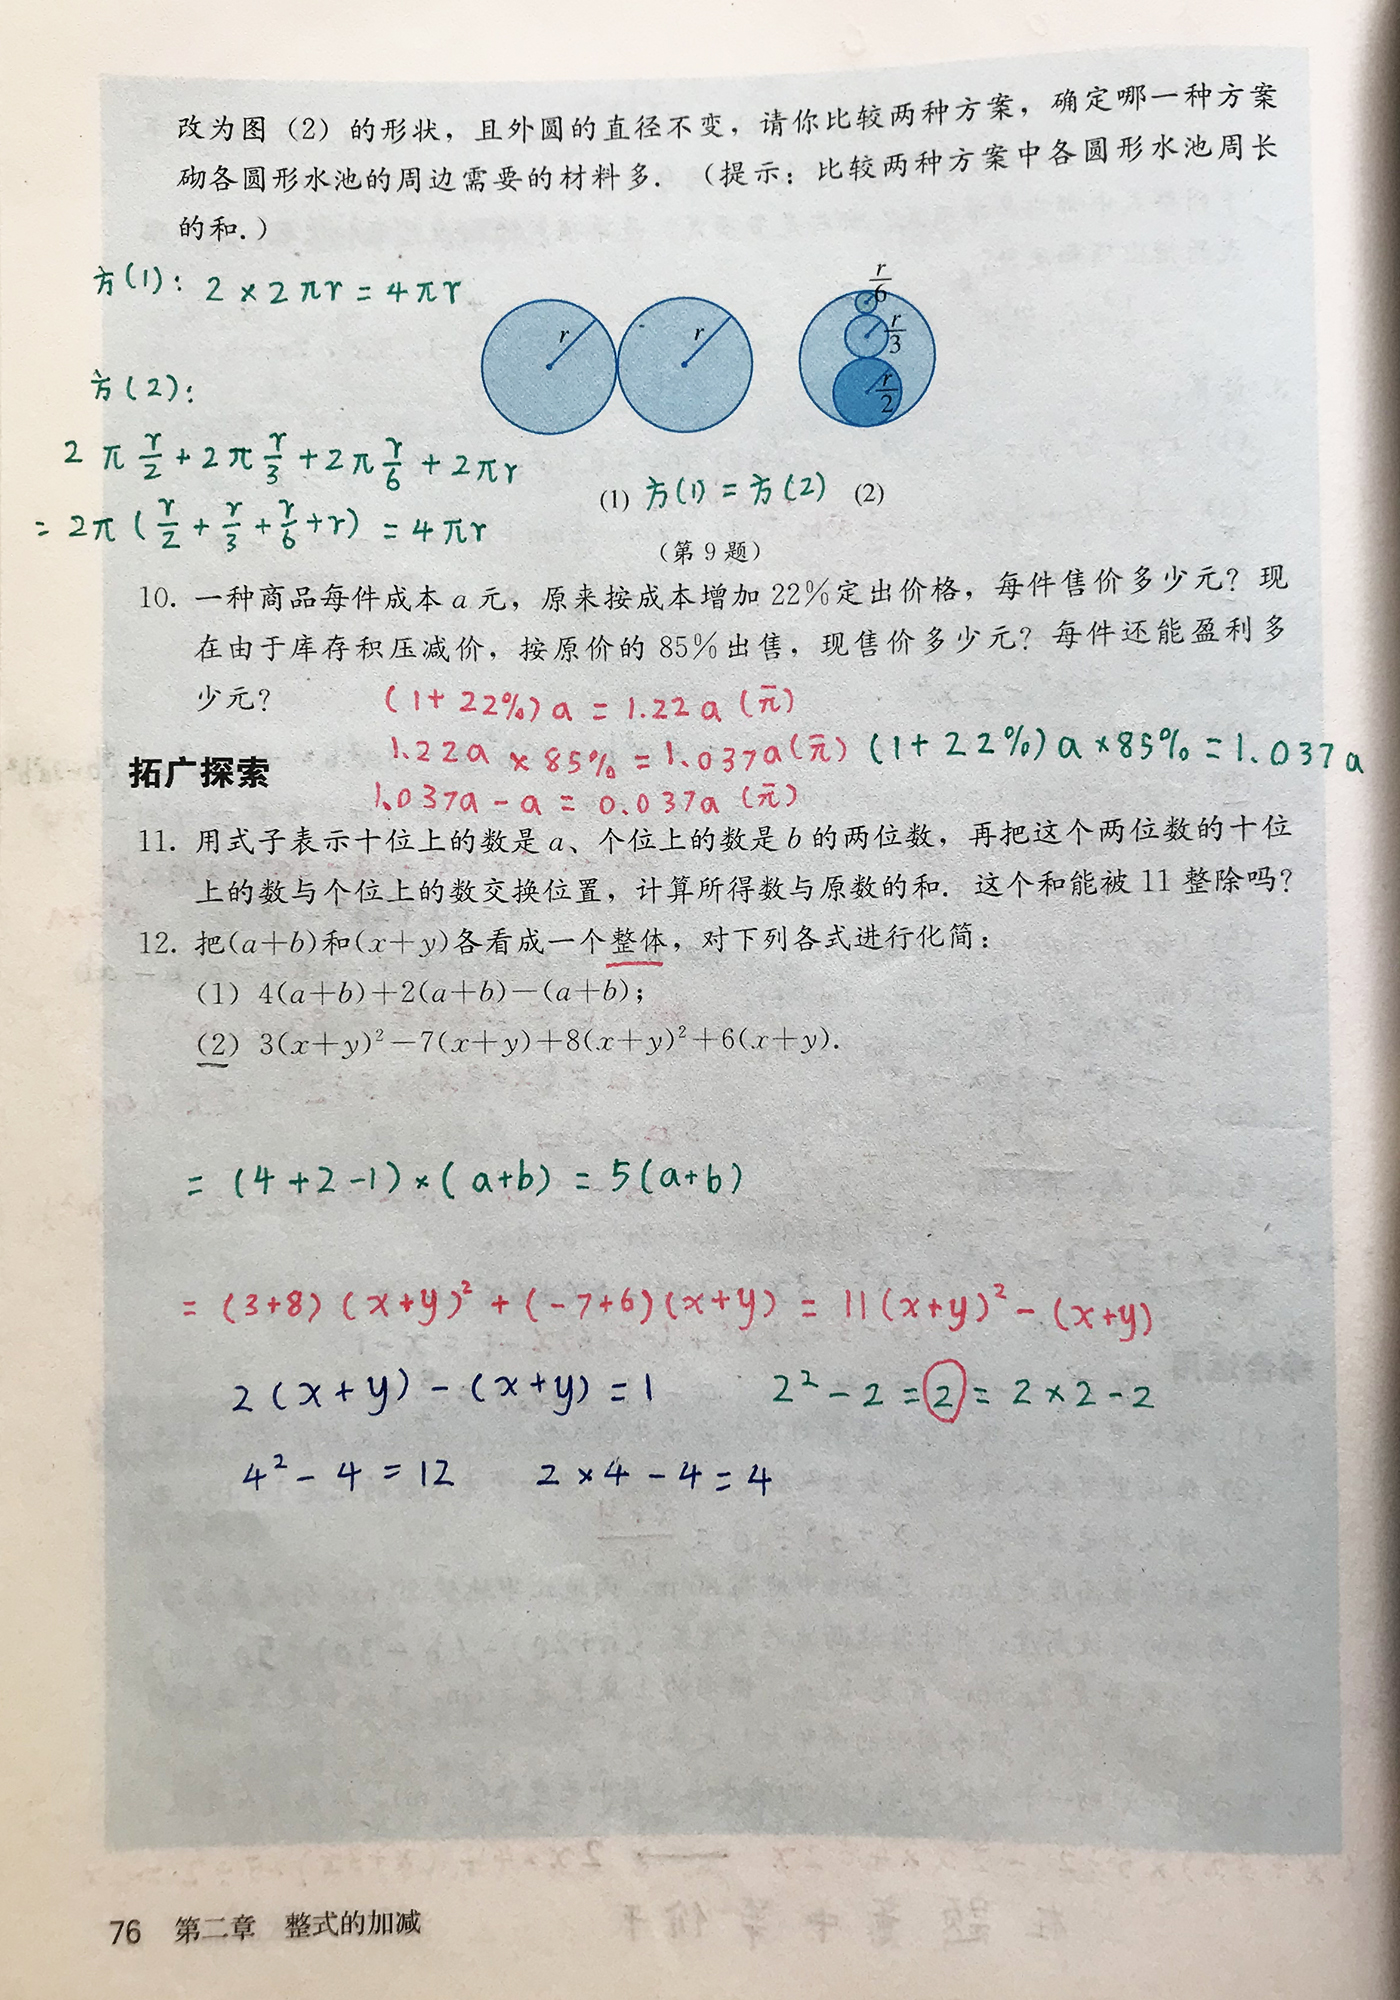 改为图（2）的形状，且外圆的直径不变，请你比较两种方案，确定哪一种方案
砌各圆形水池的周边需要的材料多．（提示：比较两种方案中各圆形水池周长
的和．）
方(1): 2 × 2πr = 4πr
方(2):
2π r/2 + 2π r/3 + 2π r/6 + 2πr
= 2π (r/2 + r/3 + r/6 + r) = 4πr
r
r
r/6
r/3
r/2
(1) 方(1) = 方(2) (2)
（第 9 题）
10. 一种商品每件成本 a 元，原来按成本增加 22%定出价格，每件售价多少元？现
在由于库存积压减价，按原价的 85%出售，现售价多少元？每件还能盈利多
少元？
(1+22%)a = 1.22a (元)
1.22a × 85% = 1.037a(元) (1+22%)a×85% = 1.037a
1.037a - a = 0.037a (元)
拓广探索
11. 用式子表示十位上的数是 a、个位上的数是 b 的两位数，再把这个两位数的十位
上的数与个位上的数交换位置，计算所得数与原数的和．这个和能被 11 整除吗？
12. 把(a+b)和(x+y)各看成一个整体，对下列各式进行化简：
(1) 4(a+b)+2(a+b)−(a+b)；
(2) 3(x+y)²−7(x+y)+8(x+y)²+6(x+y).
= (4+2-1)×(a+b) = 5(a+b)
= (3+8)(x+y)² + (-7+6)(x+y) = 11(x+y)² - (x+y)
2(x+y) - (x+y) = 1 2² - 2 = 2 = 2×2-2
4² - 4 = 12 2×4-4 = 4
76 第二章 整式的加减